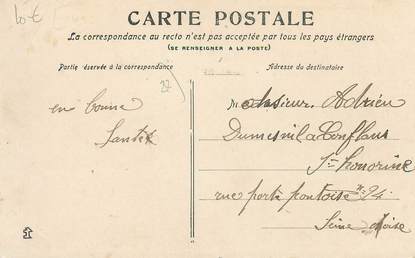 10€
CARTE POSTALE
La correspondance au recto n'est pas acceptée par tous les pays étrangers
(SE RENSEIGNER A LA POSTE)
Partie réservée à la correspondance
Adresse du destinataire
27
en bonne
Santé
Monsieur Adrien
Dumesnil a Conflans
Ste honorine
rue porte pontoise N: 24
Seine oise